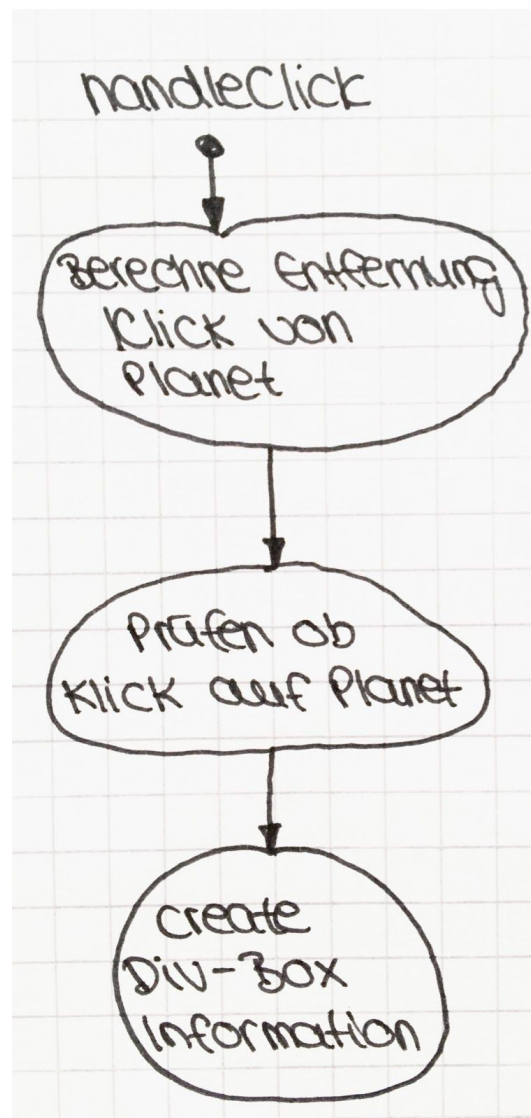 handleClick
Berechne Entfernung
Klick von
Planet
Prüfen ob
Klick auf Planet
create
Div-Box
Information